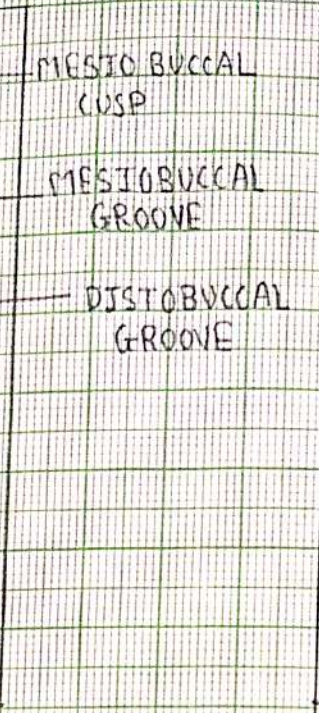 MESIO BUCCAL
CUSP
MESIOBUCCAL
GROOVE
DISTOBUCCAL
GROOVE